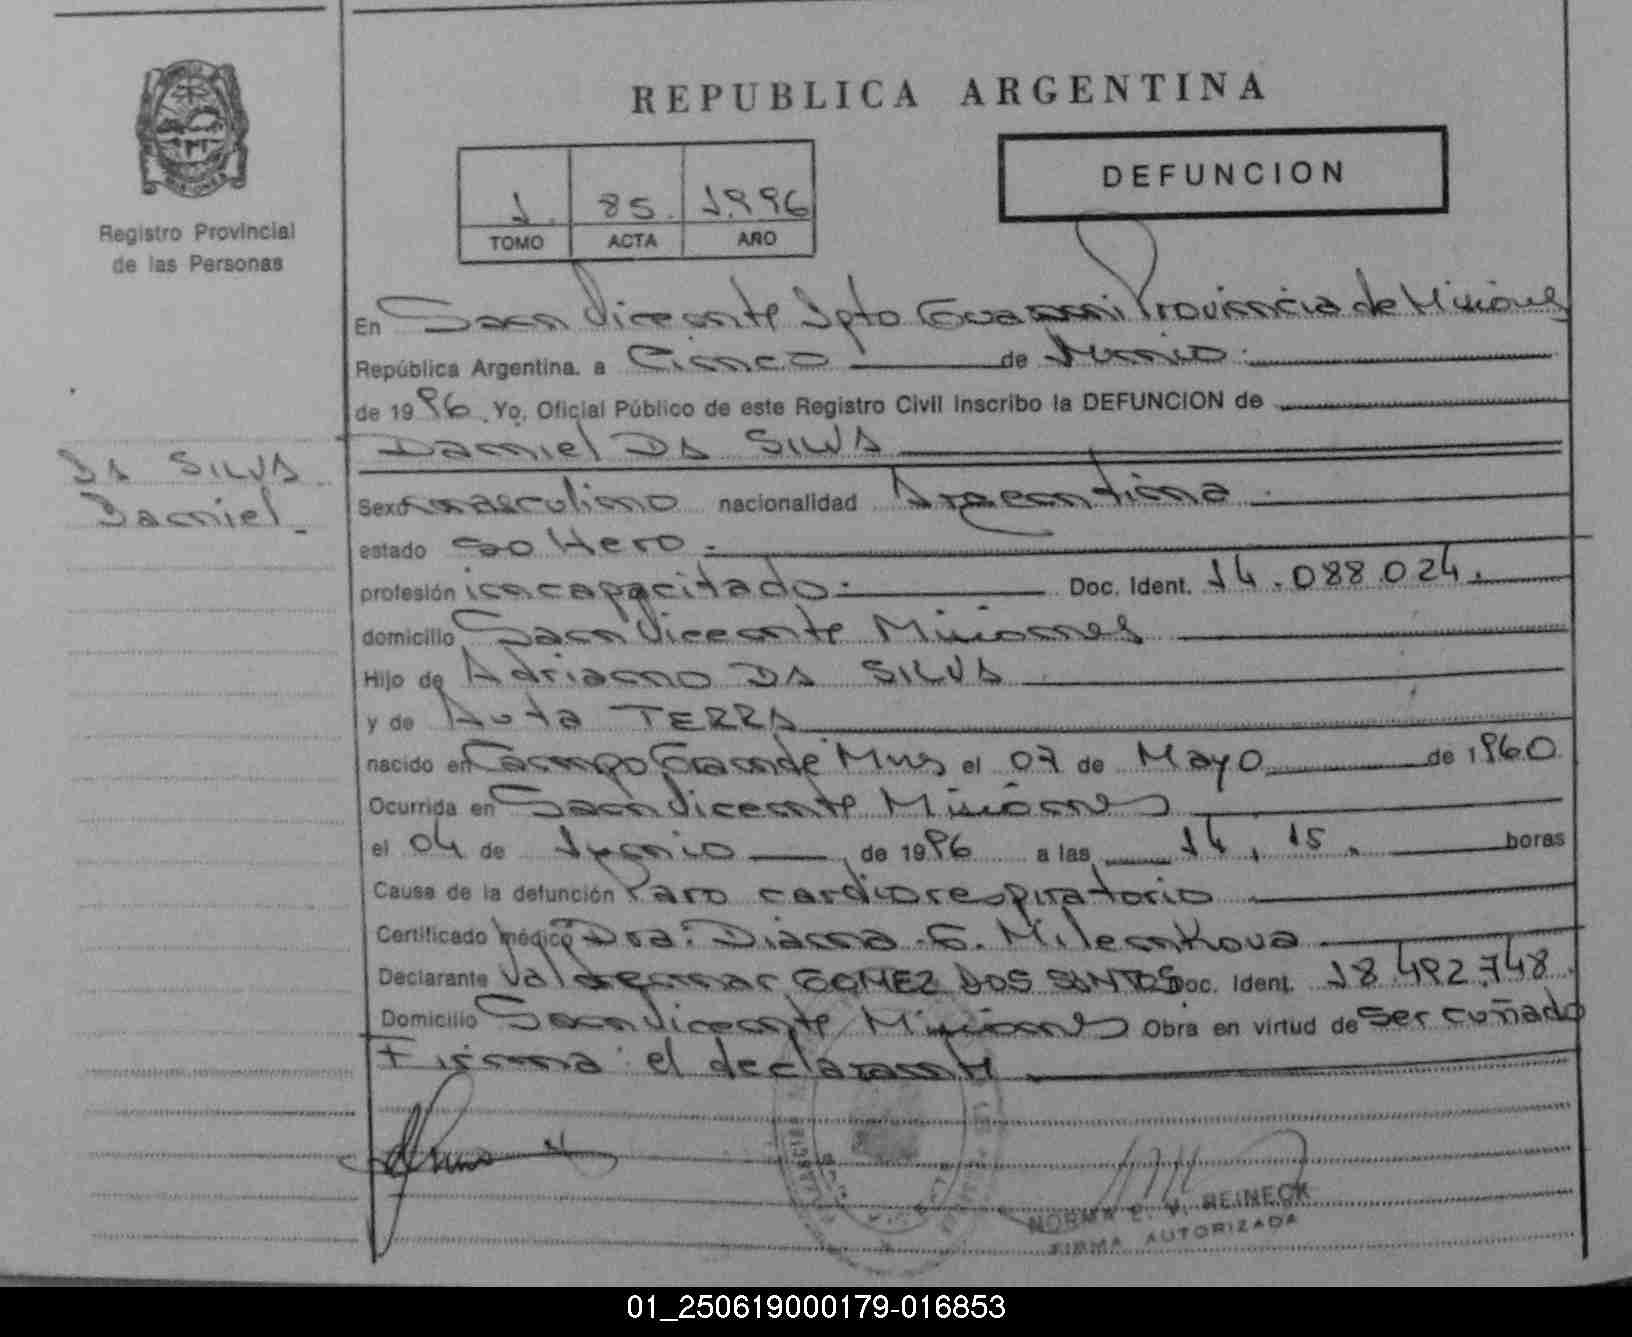 REPUBLICA ARGENTINA
DEFUNCION
1. 85. 1996
TOMO ACTA AÑO
Registro Provincial
de las Personas
En San Vicente Dpto Guarani Provincia de Misiones
República Argentina, a Cinco de Junio.
de 1996. Yo, Oficial Público de este Registro Civil inscribo la DEFUNCION de
Daniel DA SILVA
DA SILVA
Daniel.
Sexo masculino nacionalidad Argentina.
estado soltero.
profesión incapacitado. Doc. Ident. 14.088.024.
domicilio San Vicente Misiones
Hijo de Adriano DA SILVA
y de Auta TERRA
nacido en Campo Grande Mnes el 07 de Mayo de 1960.
Ocurrida en San Vicente Misiones
el 04 de Junio de 1996 a las 14,15. horas
Causa de la defunción Paro cardiorespiratorio
Certificado médico Dra. Diana G. Milenkova
Declarante Valdemar GOMEZ DOS SANTOS Doc. Ident. 18.492.748.
Domicilio San Vicente Misiones Obra en virtud de ser cuñado
Firma: el declarante
NORMA E. V. REINECK
FIRMA AUTORIZADA
01_250619000179-016853